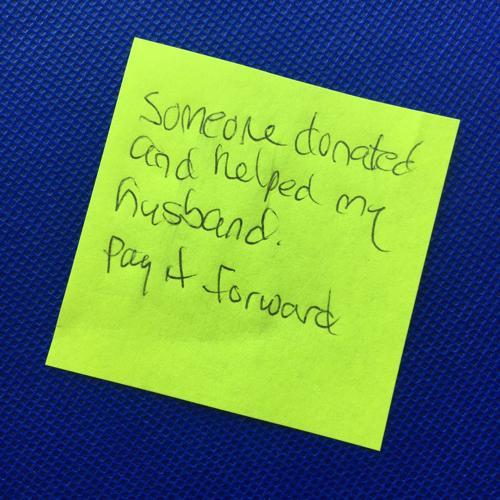 Someone donated
and helped my
husband.
Pay it forward